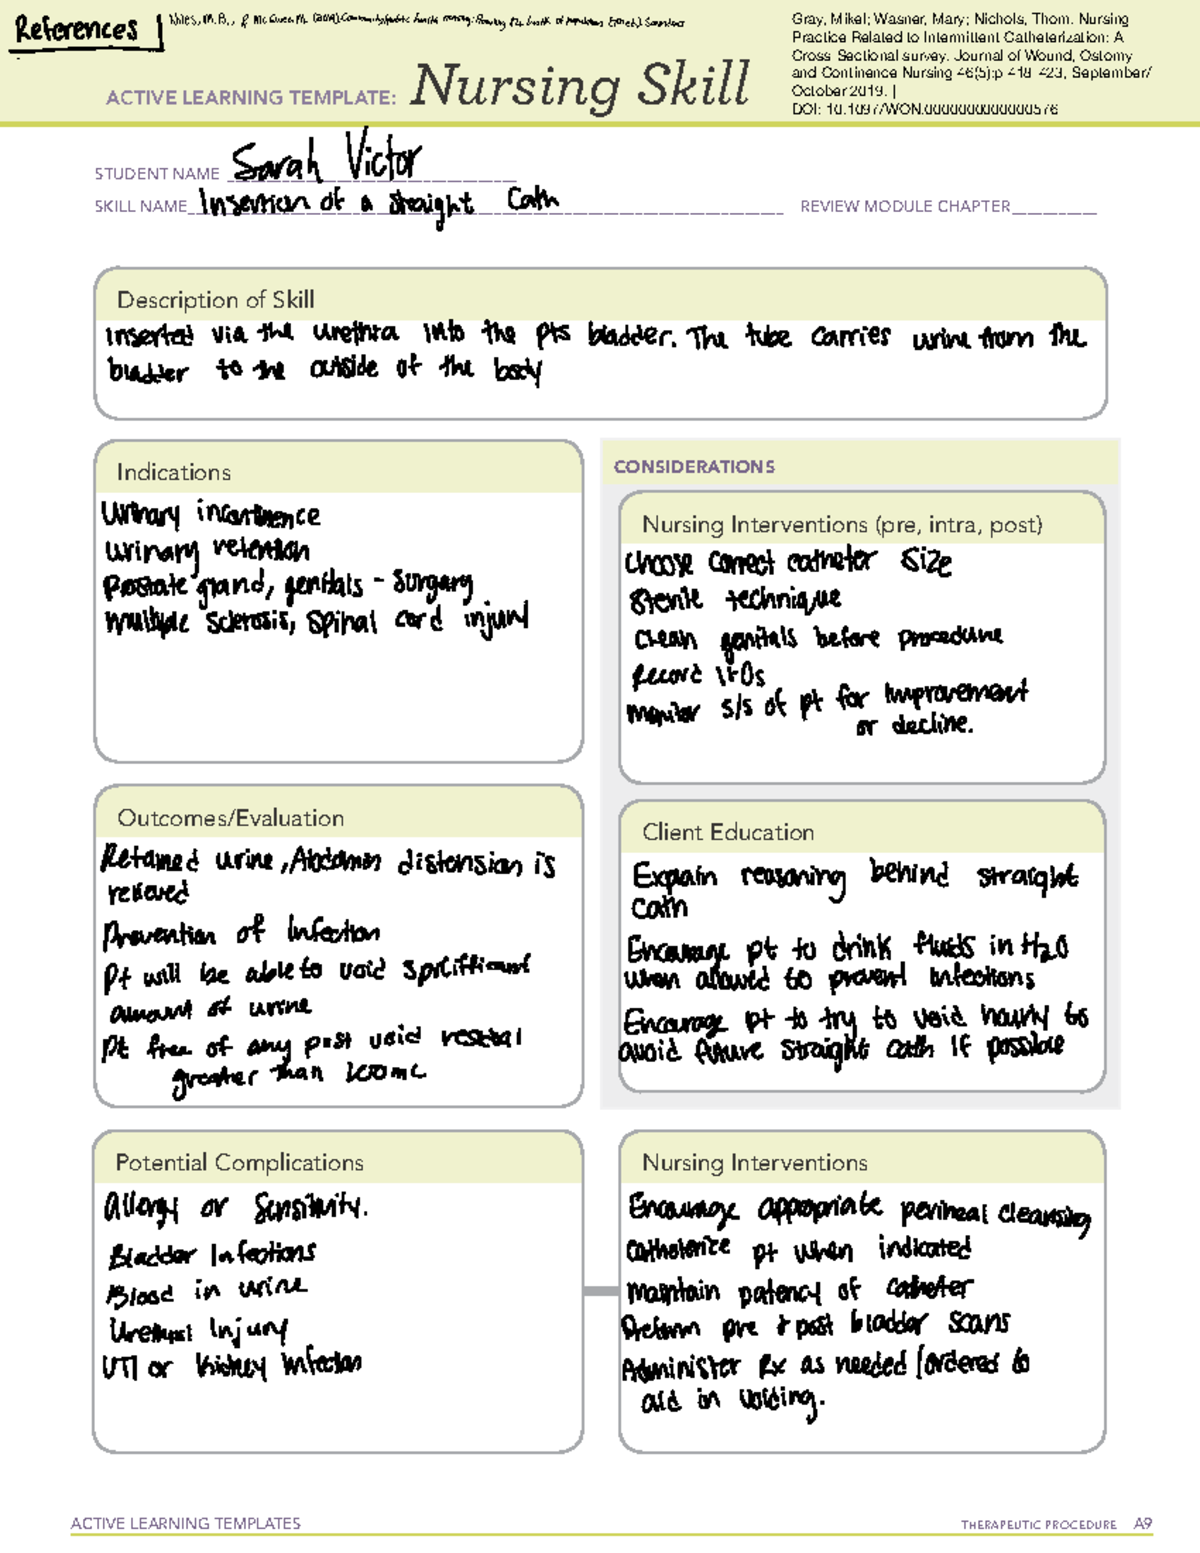 References
Nies, M. A., & McEwen, M. (2019). Community/public health nursing: Promoting the health of populations Saunders
Gray, Mikel; Wasner, Mary; Nichols, Thom. Nursing
Practice Related to Intermittent Catheterization: A
Cross Sectional survey. Journal of Wound, Ostomy
and Continence Nursing 46(5):p 418 423, September/
October 2019. |
DOI: 10.1097/WON.0000000000000576
ACTIVE LEARNING TEMPLATE: Nursing Skill
STUDENT NAME Sarah Victor
SKILL NAME Insertion of a straight Cath REVIEW MODULE CHAPTER
Description of Skill
Inserted via the urethra into the pts bladder. The tube carries urine from the
bladder to the outside of the body
Indications
Urinary incontinence
urinary retention
Prostate gland, genitals - surgery
multiple sclerosis, spinal cord injury
CONSIDERATIONS
Nursing Interventions (pre, intra, post)
Choose correct catheter size
Sterile technique
Clean genitals before procedure
Record I+Os
Monitor s/s of pt for improvement
or decline.
Outcomes/Evaluation
Retained urine, Abdomin distension is
relieved
Prevention of infection
Pt will be able to void
amount of urine
Pt free of any post void residual
greater than 100mL
Client Education
Explain reasoning behind straight
cath
Encourage pt to drink fluids in H2O
when allowed to prevent infections
Encourage pt to try to void hourly to
avoid future straight cath if possible
Potential Complications
Allergy or Sensitivity.
Bladder Infections
Blood in urine
Urethral Injury
UTI or Kidney infection
Nursing Interventions
Encourage appropriate perineal cleansing
Catheterize pt when indicated
maintain patency of catheter
Preform pre + post bladder scans
Administer Rx as needed/ordered to
aid in voiding.
ACTIVE LEARNING TEMPLATES
THERAPEUTIC PROCEDURE A9